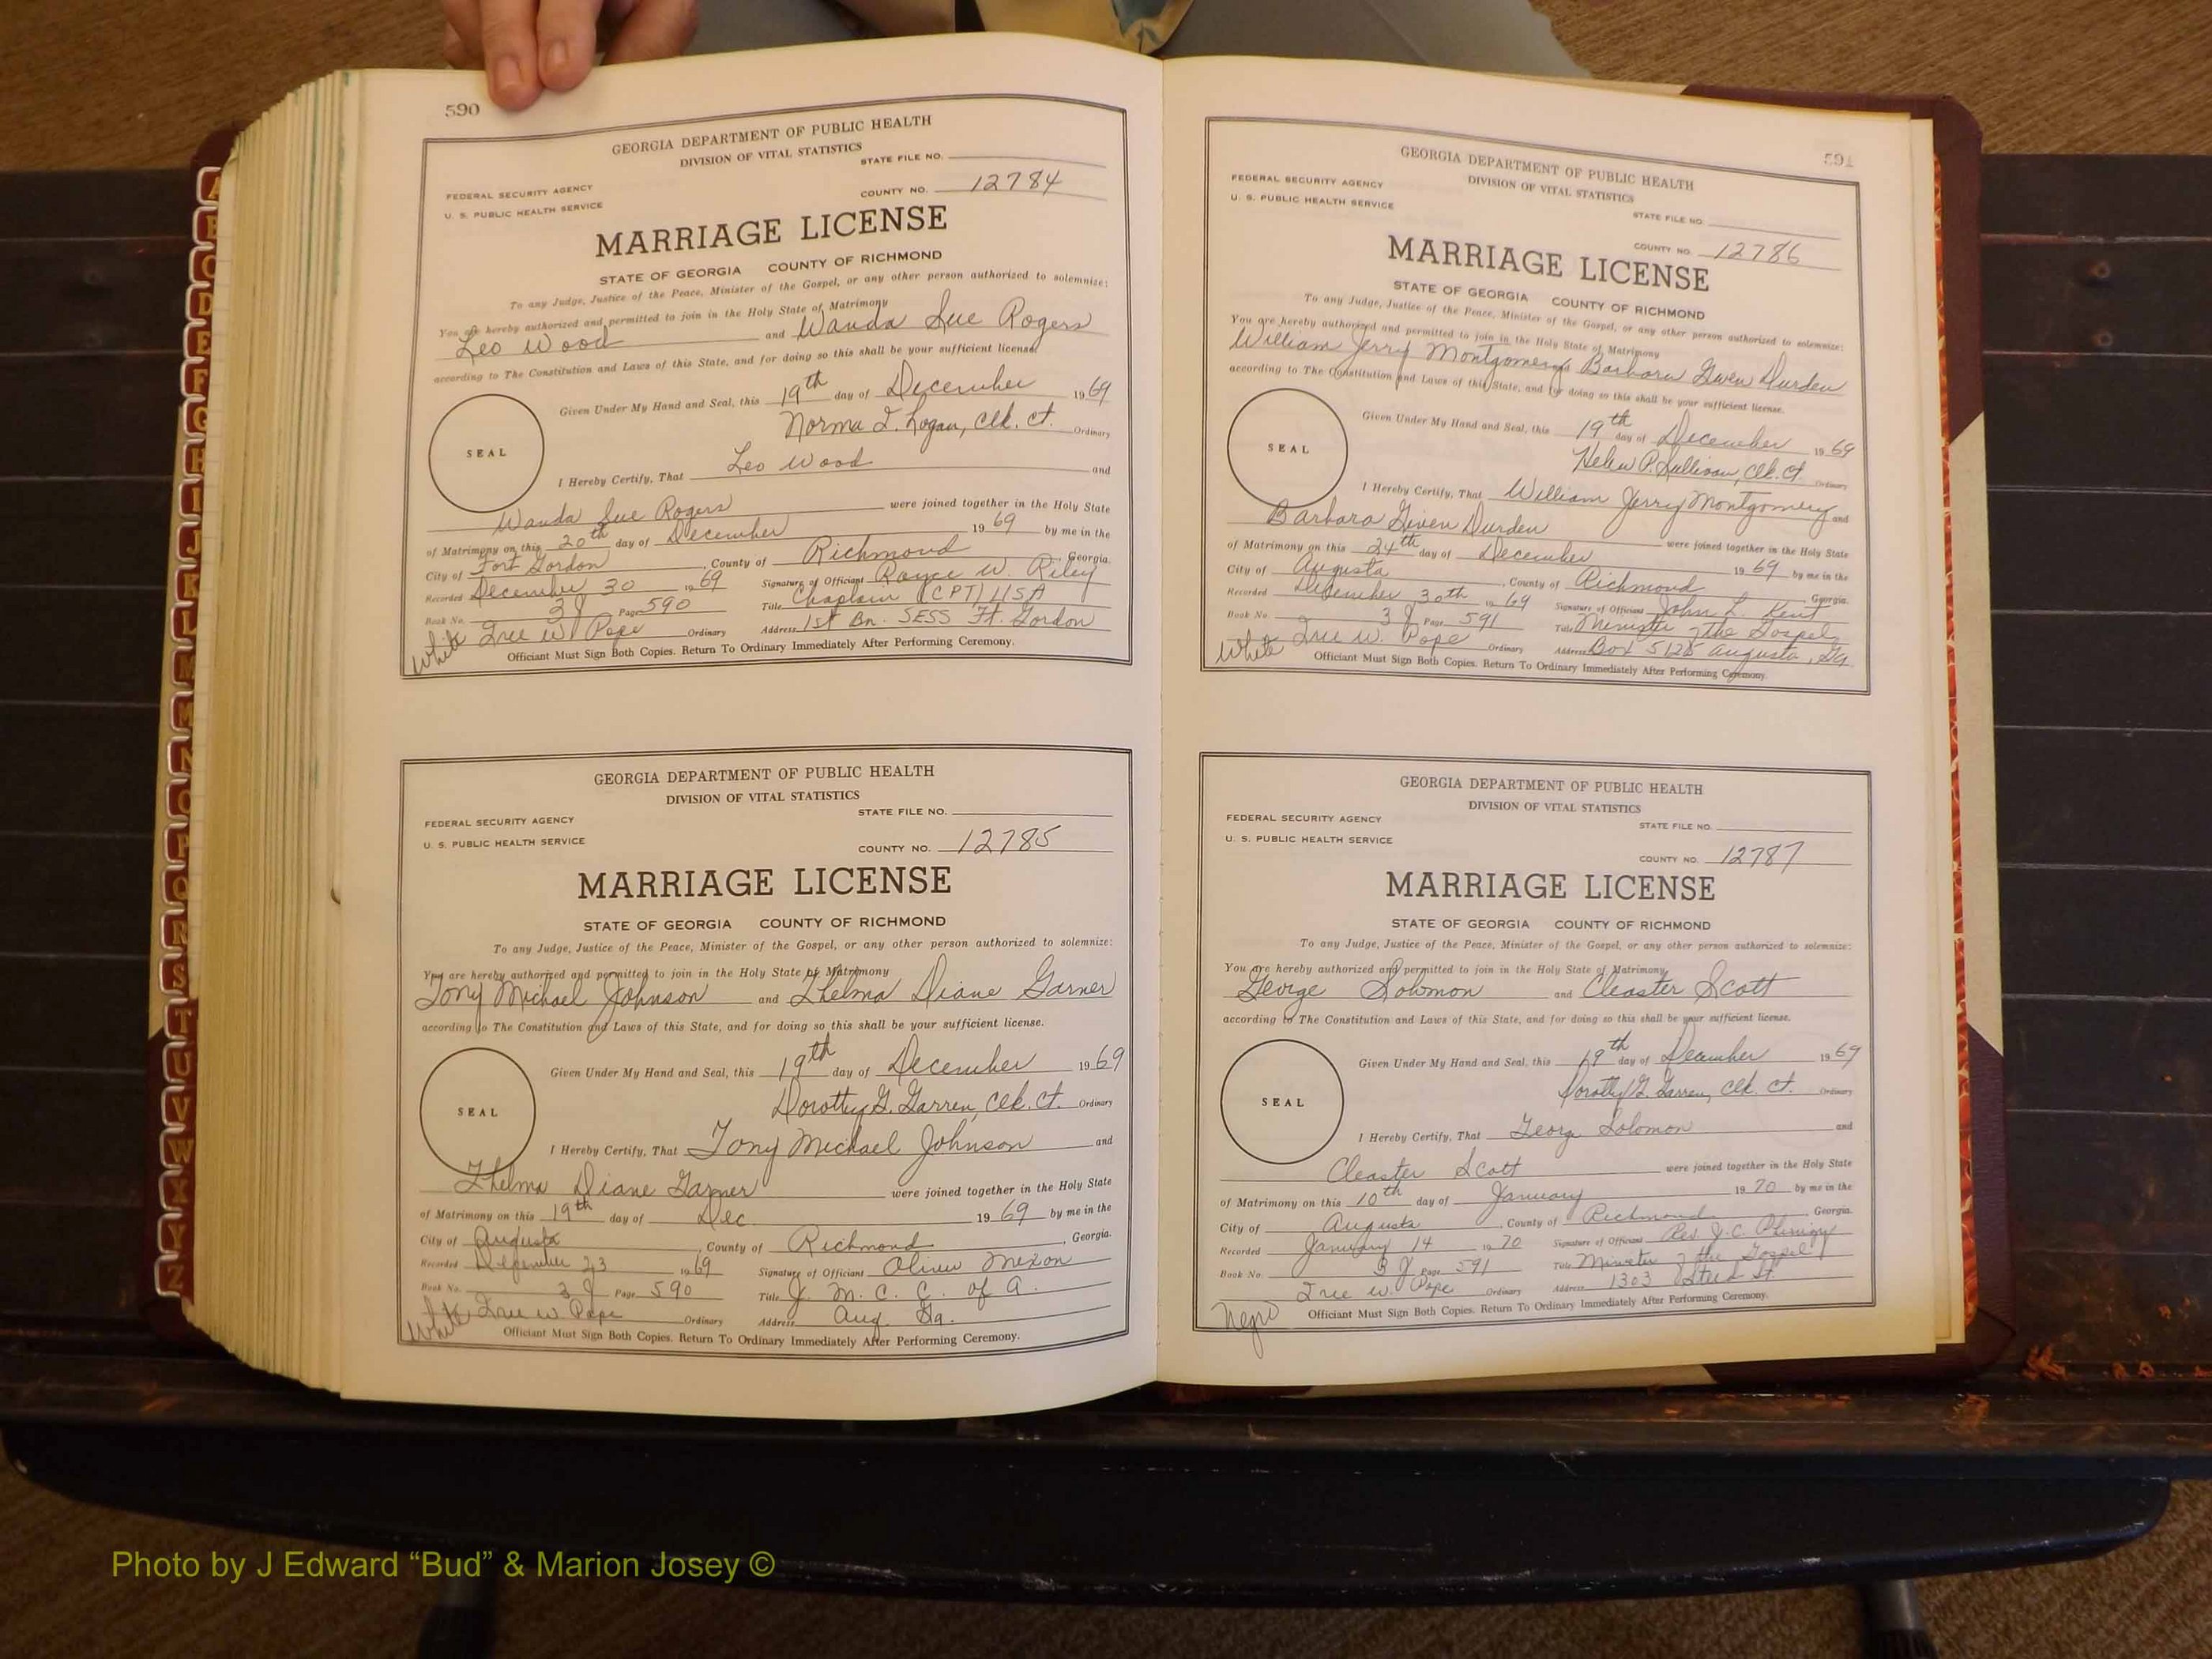 590
GEORGIA DEPARTMENT OF PUBLIC HEALTH
DIVISION OF VITAL STATISTICS
STATE FILE NO.
FEDERAL SECURITY AGENCY
COUNTY NO. 12784
U. S. PUBLIC HEALTH SERVICE
MARRIAGE LICENSE
STATE OF GEORGIA COUNTY OF RICHMOND
To any Judge, Justice of the Peace, Minister of the Gospel, or any other person authorized to solemnize:
You are hereby authorized and permitted to join in the Holy State of Matrimony
Leo Wood and Wanda Sue Rogers
according to The Constitution and Laws of this State, and for doing so this shall be your sufficient license.
Given Under My Hand and Seal, this 19th day of December 1969
Norma I. Logan, Clk. Ct. Ordinary
SEAL
I Hereby Certify, That Leo Wood and
Wanda Sue Rogers were joined together in the Holy State
of Matrimony on this 20th day of December 1969 by me in the
City of Fort Gordon, County of Richmond, Georgia.
Recorded December 30 1969 Signature of Officiant Royce W. Riley
Book No. 38 Page 590 Title Chaplain (CPT) USA
White True W. Pope Ordinary Address 1st Bn. SESS Ft. Gordon
Officiant Must Sign Both Copies. Return To Ordinary Immediately After Performing Ceremony.
GEORGIA DEPARTMENT OF PUBLIC HEALTH
DIVISION OF VITAL STATISTICS
STATE FILE NO.
FEDERAL SECURITY AGENCY
U. S. PUBLIC HEALTH SERVICE
COUNTY NO. 12785
MARRIAGE LICENSE
STATE OF GEORGIA COUNTY OF RICHMOND
To any Judge, Justice of the Peace, Minister of the Gospel, or any other person authorized to solemnize:
You are hereby authorized and permitted to join in the Holy State of Matrimony
Tony Michael Johnson and Thelma Diane Garner
according to The Constitution and Laws of this State, and for doing so this shall be your sufficient license.
Given Under My Hand and Seal, this 19th day of December 1969
Dorothy G. Garren, Clk. Ct. Ordinary
SEAL
I Hereby Certify, That Tony Michael Johnson and
Thelma Diane Garner were joined together in the Holy State
of Matrimony on this 19th day of Dec. 1969 by me in the
City of Augusta, County of Richmond, Georgia.
Recorded December 23 1969 Signature of Officiant Oliver Mixon
Book No. Page 590 Title J. M. C. C. of A.
White True W. Pope Ordinary Address Aug. Ga.
Officiant Must Sign Both Copies. Return To Ordinary Immediately After Performing Ceremony.
591
GEORGIA DEPARTMENT OF PUBLIC HEALTH
DIVISION OF VITAL STATISTICS
FEDERAL SECURITY AGENCY
U. S. PUBLIC HEALTH SERVICE
STATE FILE NO.
COUNTY NO. 12786
MARRIAGE LICENSE
STATE OF GEORGIA COUNTY OF RICHMOND
To any Judge, Justice of the Peace, Minister of the Gospel, or any other person authorized to solemnize:
You are hereby authorized and permitted to join in the Holy State of Matrimony
William Jerry Montgomery Barbara Gwen Durden
according to The Constitution and Laws of this State, and for doing so this shall be your sufficient license.
Given Under My Hand and Seal, this 19th day of December 1969
Helen P. Sullivan, Clk. Ct. Ordinary
SEAL
I Hereby Certify, That William Jerry Montgomery and
Barbara Gwen Durden were joined together in the Holy State
of Matrimony on this 24th day of December 1969 by me in the
City of Augusta, County of Richmond Georgia.
Recorded December 30th 1969 Signature of Officiant John L. Kent
Book No. Page 591 Title Minister of the Gospel
White True W. Pope Ordinary Address Box 5125 Augusta, Ga.
Officiant Must Sign Both Copies. Return To Ordinary Immediately After Performing Ceremony.
GEORGIA DEPARTMENT OF PUBLIC HEALTH
DIVISION OF VITAL STATISTICS
FEDERAL SECURITY AGENCY
STATE FILE NO.
U. S. PUBLIC HEALTH SERVICE
COUNTY NO. 12787
MARRIAGE LICENSE
STATE OF GEORGIA COUNTY OF RICHMOND
To any Judge, Justice of the Peace, Minister of the Gospel, or any other person authorized to solemnize:
You are hereby authorized and permitted to join in the Holy State of Matrimony
George Solomon and Cleaster Scott
according to The Constitution and Laws of this State, and for doing so this shall be your sufficient license.
Given Under My Hand and Seal, this 19th day of December 1969
Dorothy G. Garren, Clk. Ct. Ordinary
SEAL
I Hereby Certify, That George Solomon and
Cleaster Scott were joined together in the Holy State
of Matrimony on this 10th day of January 1970 by me in the
City of Augusta, County of Richmond Georgia.
Recorded January 14 1970 Signature of Officiant Rev. J. C.
Book No. Page 591 Title Minister of the Gospel
True W. Pope Ordinary Address 1303 St.
Negro Officiant Must Sign Both Copies. Return To Ordinary Immediately After Performing Ceremony.
A
B
C
D
E
F
G
H
I
J
K
L
M
Mc
N
O
P
Q
R
S
T
U
V
W
X
Y
Z
Photo by J Edward “Bud” & Marion Josey ©